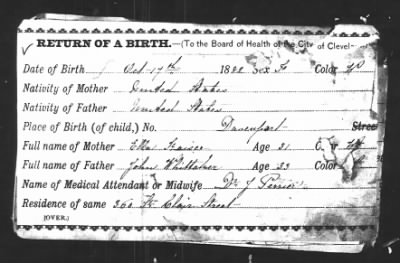 RETURN OF A BIRTH.—(To the Board of Health of the City of Clevel
Date of Birth Oct 17th 18 Sex F Color
Nativity of Mother United States
Nativity of Father United States
Place of Birth (of child,) No. Davenport Street
Full name of Mother Ella Age 21
Full name of Father John Whittaker Age 23 Color
Name of Medical Attendant or Midwife Dr J
Residence of same 360 St Clair Street
(OVER.)